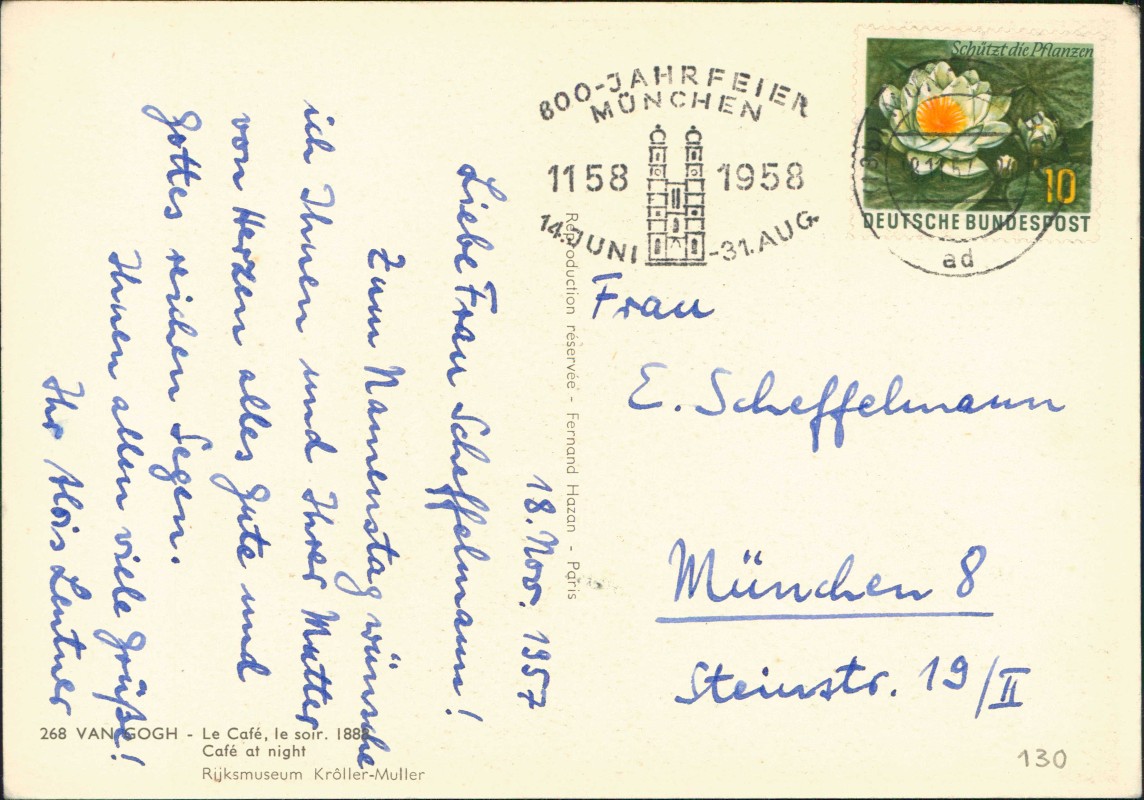 18. Nov. 1957
Liebe Frau Scheffelmann!
Zum Namenstag wünsche
ich Ihnen und Ihrer Mutter
von Herzen alles Gute und
Gottes reichen Segen.
Ihnen allen viele Grüße!
Ihr Alois Lentner
268 VAN GOGH - Le Café, le soir. 1888
Café at night
Rijksmuseum Krôller-Muller
Reproduction réservée - Fernand Hazan - Paris
800-JAHRFEIER
MÜNCHEN
1158 1958
14. JUNI -31. AUG.
Schützt die Pflanzen
10
DEUTSCHE BUNDESPOST
ad
Frau
E. Scheffelmann
München 8
Steinstr. 19/II
130